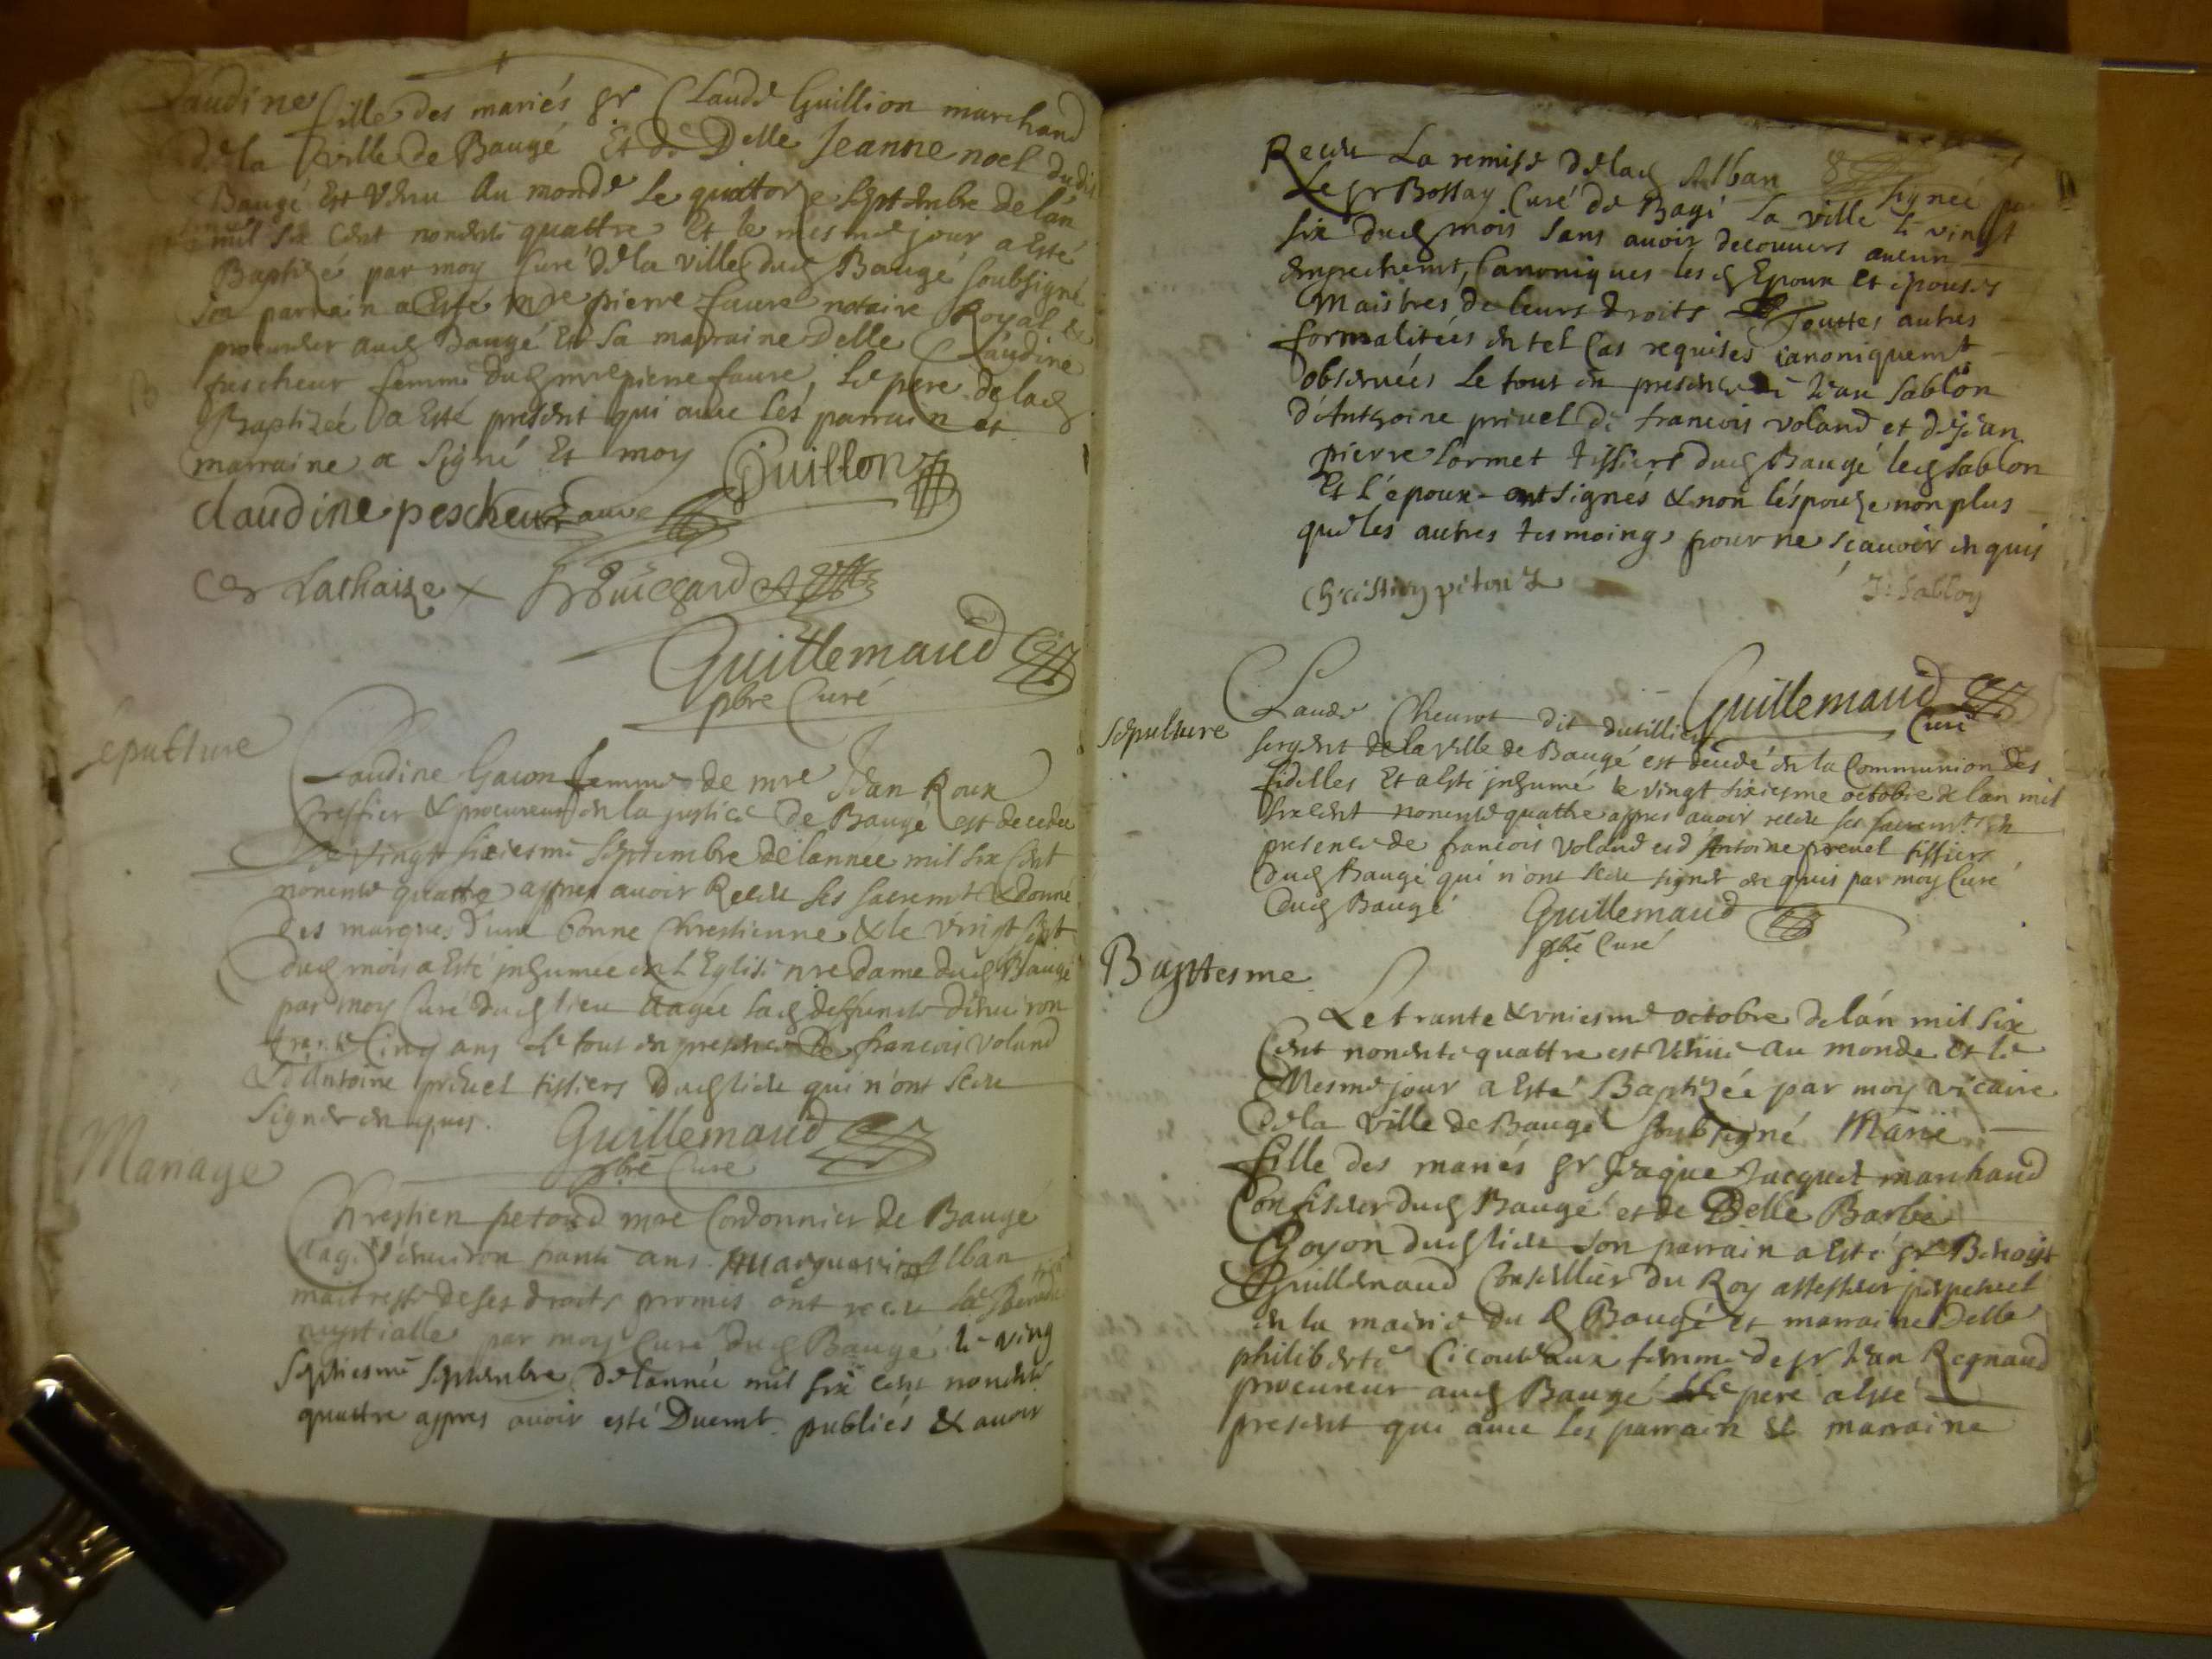 Claudine fille des mariés sr Claude Guillion marchand
de la ville de Baugé Et de Delle Jeanne noel dudit
Baugé Est venu Au monde le quattorze septembre de lan
mil six cent nonente quattre Et le mesme jour a Esté
Baptizé par moy Curé de la ville dud Baugé soubsigné
son parrain a Esté mre pierre faure notaire Royal &
procureur aud Baugé Et sa marraine Delle Claudine
pescheur femme dud mre pierre faure, le pere de lad
Baptizée a Esté present qui avec les parrain et
marraine a signé Et moy Guillon
claudine pescheur faure
Lachaize
Guillemaud
pbre Curé
sépulture
Claudine Gacon femme de mre Jean Roux
Greffier & procureur en la justice de Baugé est decedée
Le vingt sixiesme septembre de lannee mil six cent
nonente quattre appres avoir Receu ses sacremts & donné
des marques d'une bonne Chrestienne & le vingt sept
dud mois a Esté inhumée en L Eglise nre dame dud Baugé
par moy Curé dud lieu Aagée lad deffuncte d'environ
trante Cinq ans le tout en presence De francois Voland
& d'Antoine privel tissiers dud lieu qui n'ont sceu
signer enquis. Guillemaud
pbre Curé
Mariage
Chrestien petond mre Cordonnier de Baugé
aagé d'environ trante ans & Marguerite Alban
maitresse de ses droits promis ont receu la Benediction
nuptialle par moy Curé dud Baugé le ving
septiesme septembre de lannée mil six cent nonente
quattre appres avoir esté Duemt publiés & avoir
Receu La remise de lad Alban signee par
Le sr Bossay Curé de Bagé la ville le vingt
six dud mois sans avoir decouvers aucun
empechemt Canoniques lesd Epoux et épouses
Maistres de leurs droits Touttes autres
formalitées en tel Cas requises canoniquemt
observées Le tout en presence de Jean Sablon
d'Anthoine privel de francois voland et de Jean
pierre Cormet tissiers dud Baugé led Sablon
Et l'époux ont signés & non l'espouze non plus
que les autres tesmoings pour ne sçavoir enquis
J: Sablon
Guillemaud
Curé
Sépulture
Claude Chevrot dit dutillier
sergent de la ville de Baugé est decedé en la Communion des
fidelles Et a esté inhumé le vingt sixiesme octobre de lan mil
six cent nonente quattre appres avoir receu ses sacremts En
presence de francois Voland et d Antoine prevel tissiers
dud Baugé qui n'ont sceu signer enquis par moy Curé
dud Baugé Guillemaud
pbre Curé
Baptesme
Le trante & uniesme octobre de lán mil six
Cent nonente quattre est venüe au monde et le
Mesme jour a Esté Baptizée par moy vicaire
de la ville de Baugé soubsigné Marie
fille des mariés sr Jaque Jacquet marchand
Confiseur dud Baugé et de Delle Barbe
Goyon dud lieu son parrain a Esté sr Benoist
Guillemaud Conseillier du Roy assesseur perpetuel
en la mairie du d Baugé et marraine Delle
philiberte femme de sr Jean Regnaud
procureur aud Baugé Le pere a esté
present qui avec les parrain & marraine